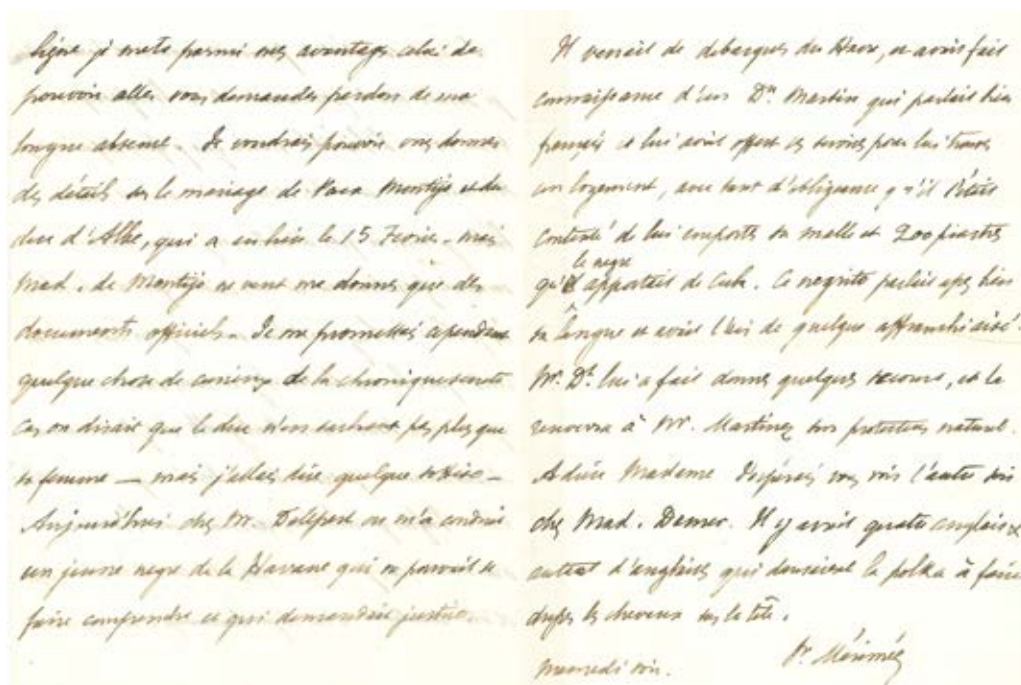 ligne je mets parmi mes avantages celui de
pouvoir aller vous demander pardon de ma
longue absence. Je voudrais pouvoir vous donner
des détails sur le mariage de Paca Montijo et du
duc d'Albe, qui a eu lieu le 15 Fevrier - mais
Mad. de Montijo ne veut me donner que des
documents officiels. Je me promettais cependant
quelque chose de curieux de la chronique secrete
car on disait que le duc n'en sachant pas plus que
sa femme — mais j'allais dire quelque sottise -
Aujourd'hui chez Mr. Delessert on m'a conduit
un jeune negre de la Havane qui ne pouvait se
faire comprendre et qui demandait justice.
Il venait de debarquer du Havre, et avait fait
connaissance d'un Dn. Martin qui parlait bien
français et lui avait offert ses services pour lui trouver
un logement, avec tant d'obligeance qu'il s'était
contenté de lui emporter sa malle et 200 piastres
le negre
qu' apportait de Cuba. Ce negrito parlait assez bien
sa langue et avait l'air de quelque affranchi aisé.
Mr. Dt. lui a fait donner quelques secours, et le
renverra à Mr. Martinez son protecteur naturel.
Adieu Madame J'espérais vous voir l'autre soir
chez Mad. Demer. Il y avait quatre anglais et
autant d'anglaises qui dansaient la polka à faire
dresser les cheveux sur la tête.
Pr Mérimée
mercredi soir.